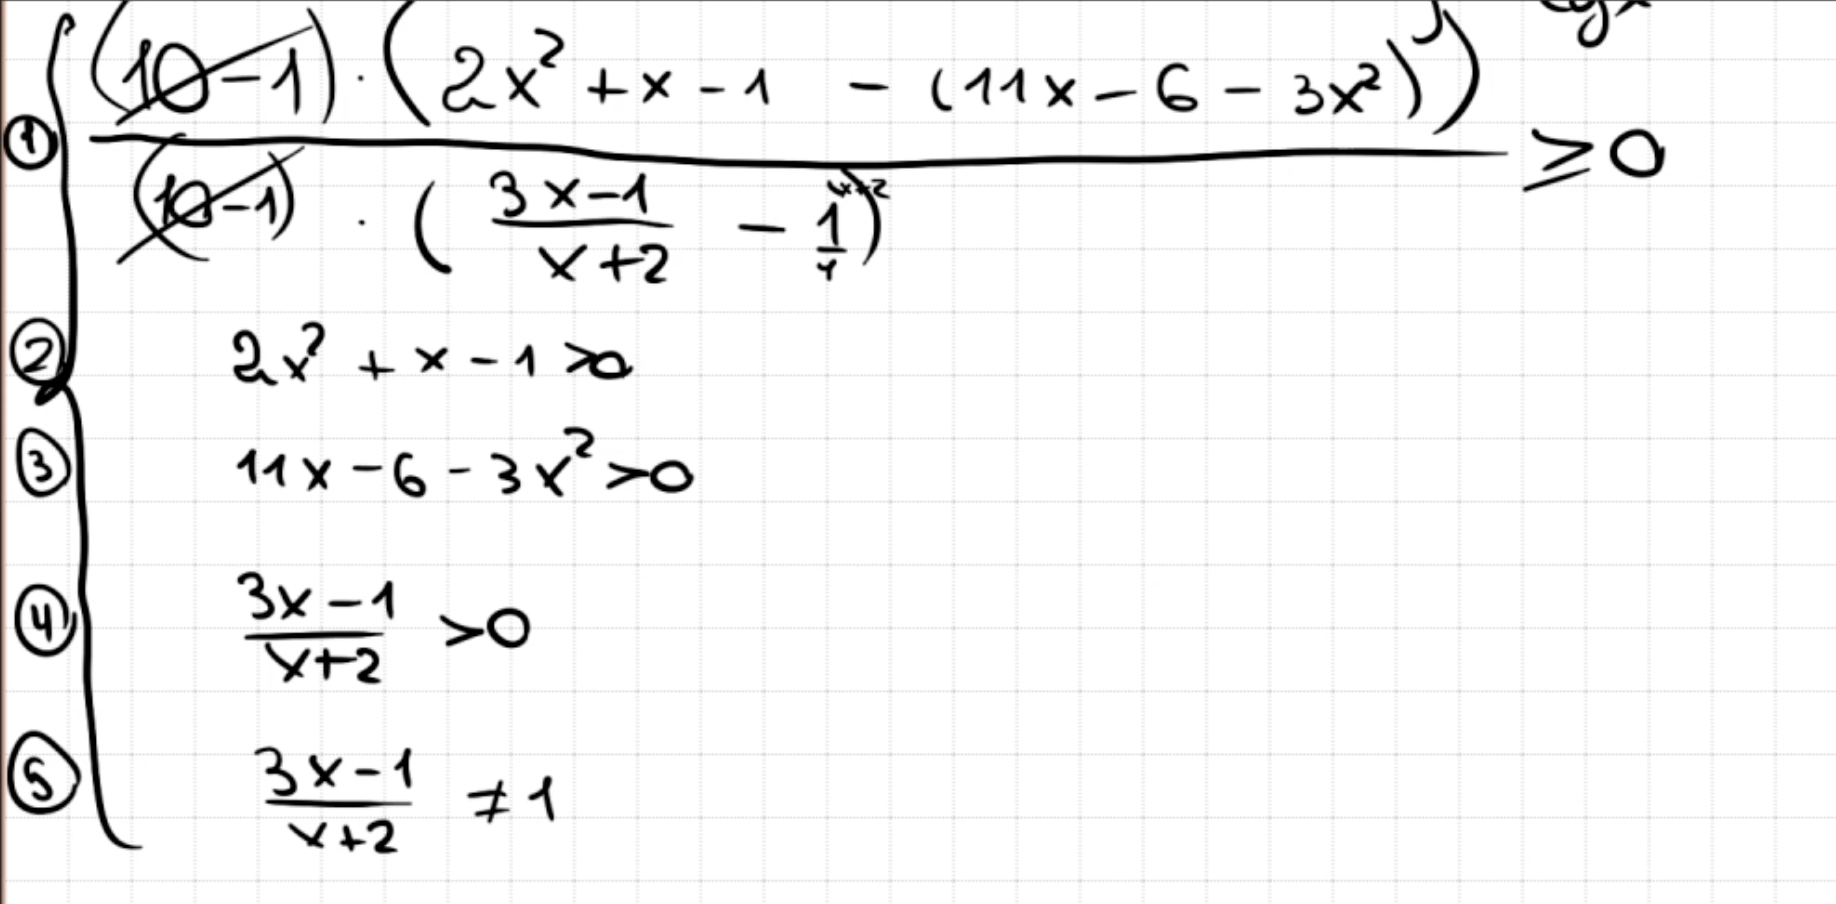 ① (10-1) · (2x² + x - 1 - (11x - 6 - 3x²)) ≥ 0
(10-1) · (3x-1 / x+2 - 1/1 x+2)
② 2x² + x - 1 > 0
③ 11x - 6 - 3x² > 0
④ 3x-1 / x+2 > 0
⑤ 3x-1 / x+2 ≠ 1